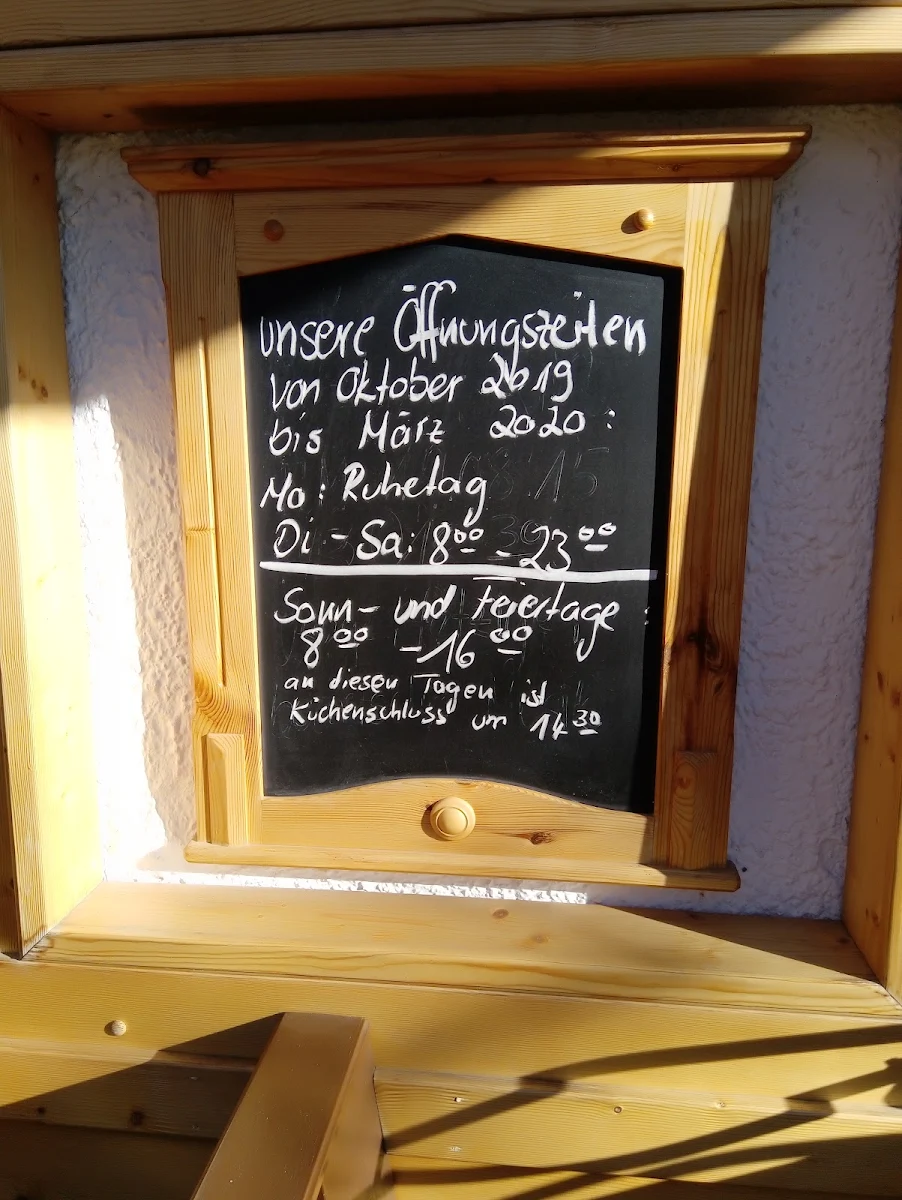 unsere Öffnungszeiten
von Oktober 2019
bis März 2020 :
Mo: Ruhetag
Di - Sa: 8⁰⁰ - 23⁰⁰
Sonn- und Feiertage :
8⁰⁰ - 16⁰⁰
an diesen Tagen ist
Küchenschluss um 14³⁰